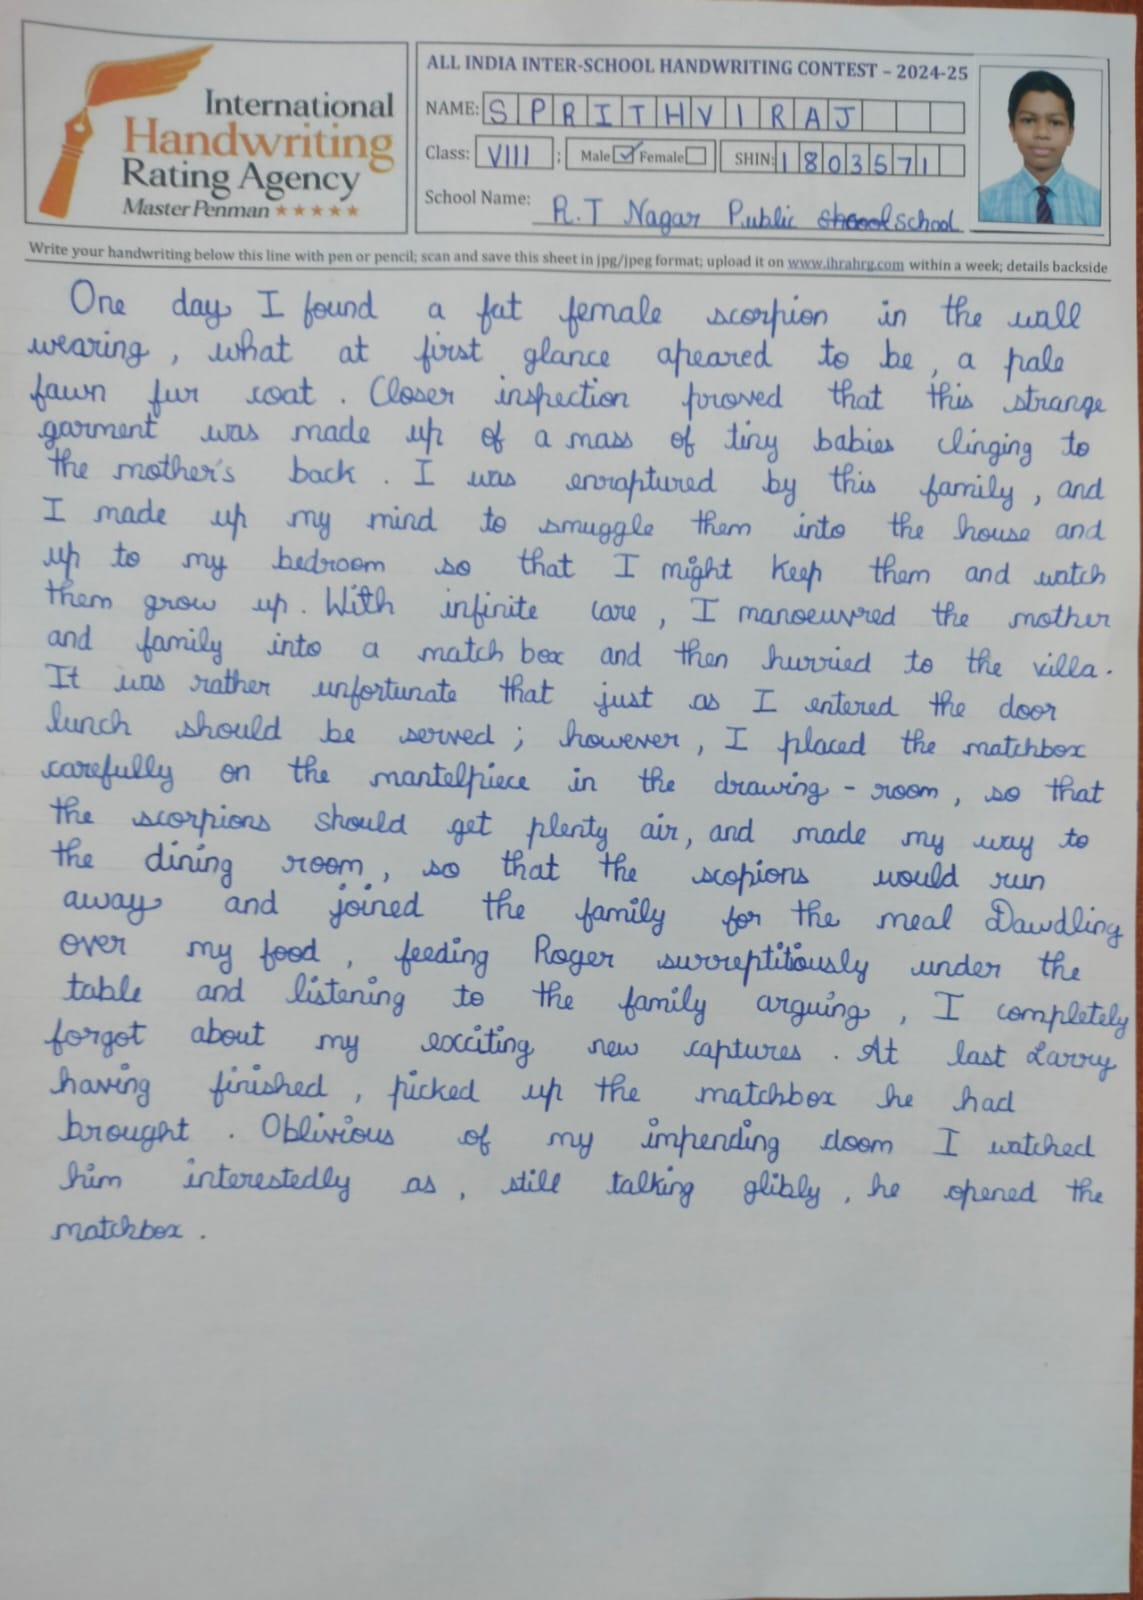 International
Handwriting
Rating Agency
Master Penman ★★★★★
ALL INDIA INTER-SCHOOL HANDWRITING CONTEST – 2024-25
NAME: S PRITHVIRAJ
Class: VIII ; Male ☑ Female ☐ SHIN: 1803571
School Name: R.T Nagar Public school
Write your handwriting below this line with pen or pencil; scan and save this sheet in jpg/jpeg format; upload it on www.ihrahrg.com within a week; details backside
One day I found a fat female scorpion in the wall
wearing, what at first glance apeared to be, a pale
fawn fur coat. Closer inspection proved that this strange
garment was made up of a mass of tiny babies clinging to
the mother's back. I was enraptured by this family, and
I made up my mind to smuggle them into the house and
up to my bedroom so that I might keep them and watch
them grow up. With infinite care, I manoeuvred the mother
and family into a match box and then hurried to the villa.
It was rather unfortunate that just as I entered the door
lunch should be served; however, I placed the matchbox
carefully on the mantelpiece in the drawing-room, so that
the scorpions should get plenty air, and made my way to
the dining room, so that the scopions would run
away and joined the family for the meal Dawdling
over my food, feeding Roger surreptitiously under the
table and listening to the family arguing, I completely
forgot about my exciting new captures. At last Larry
having finished, picked up the matchbox he had
brought. Oblivious of my impending doom I watched
him interestedly as, still talking glibly, he opened the
matchbox.